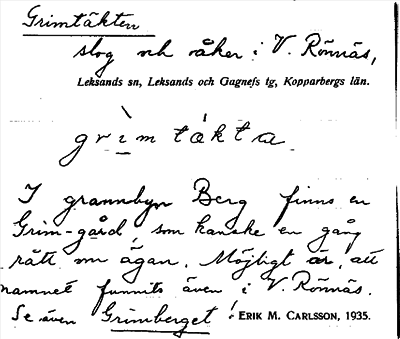 Grimtäkten
slog och åker i V. Rönnäs,
Leksands sn, Leksands och Gagnefs tg, Kopparbergs län.
grìmtákta
I grannbyn Berg finns en
Grim-gård, som kanske en gång
rått om ägan. Möjligt är, att
namnet funnits även i V. Rönnäs.
Se även Grimberget!
ERIK M. CARLSSON, 1935.